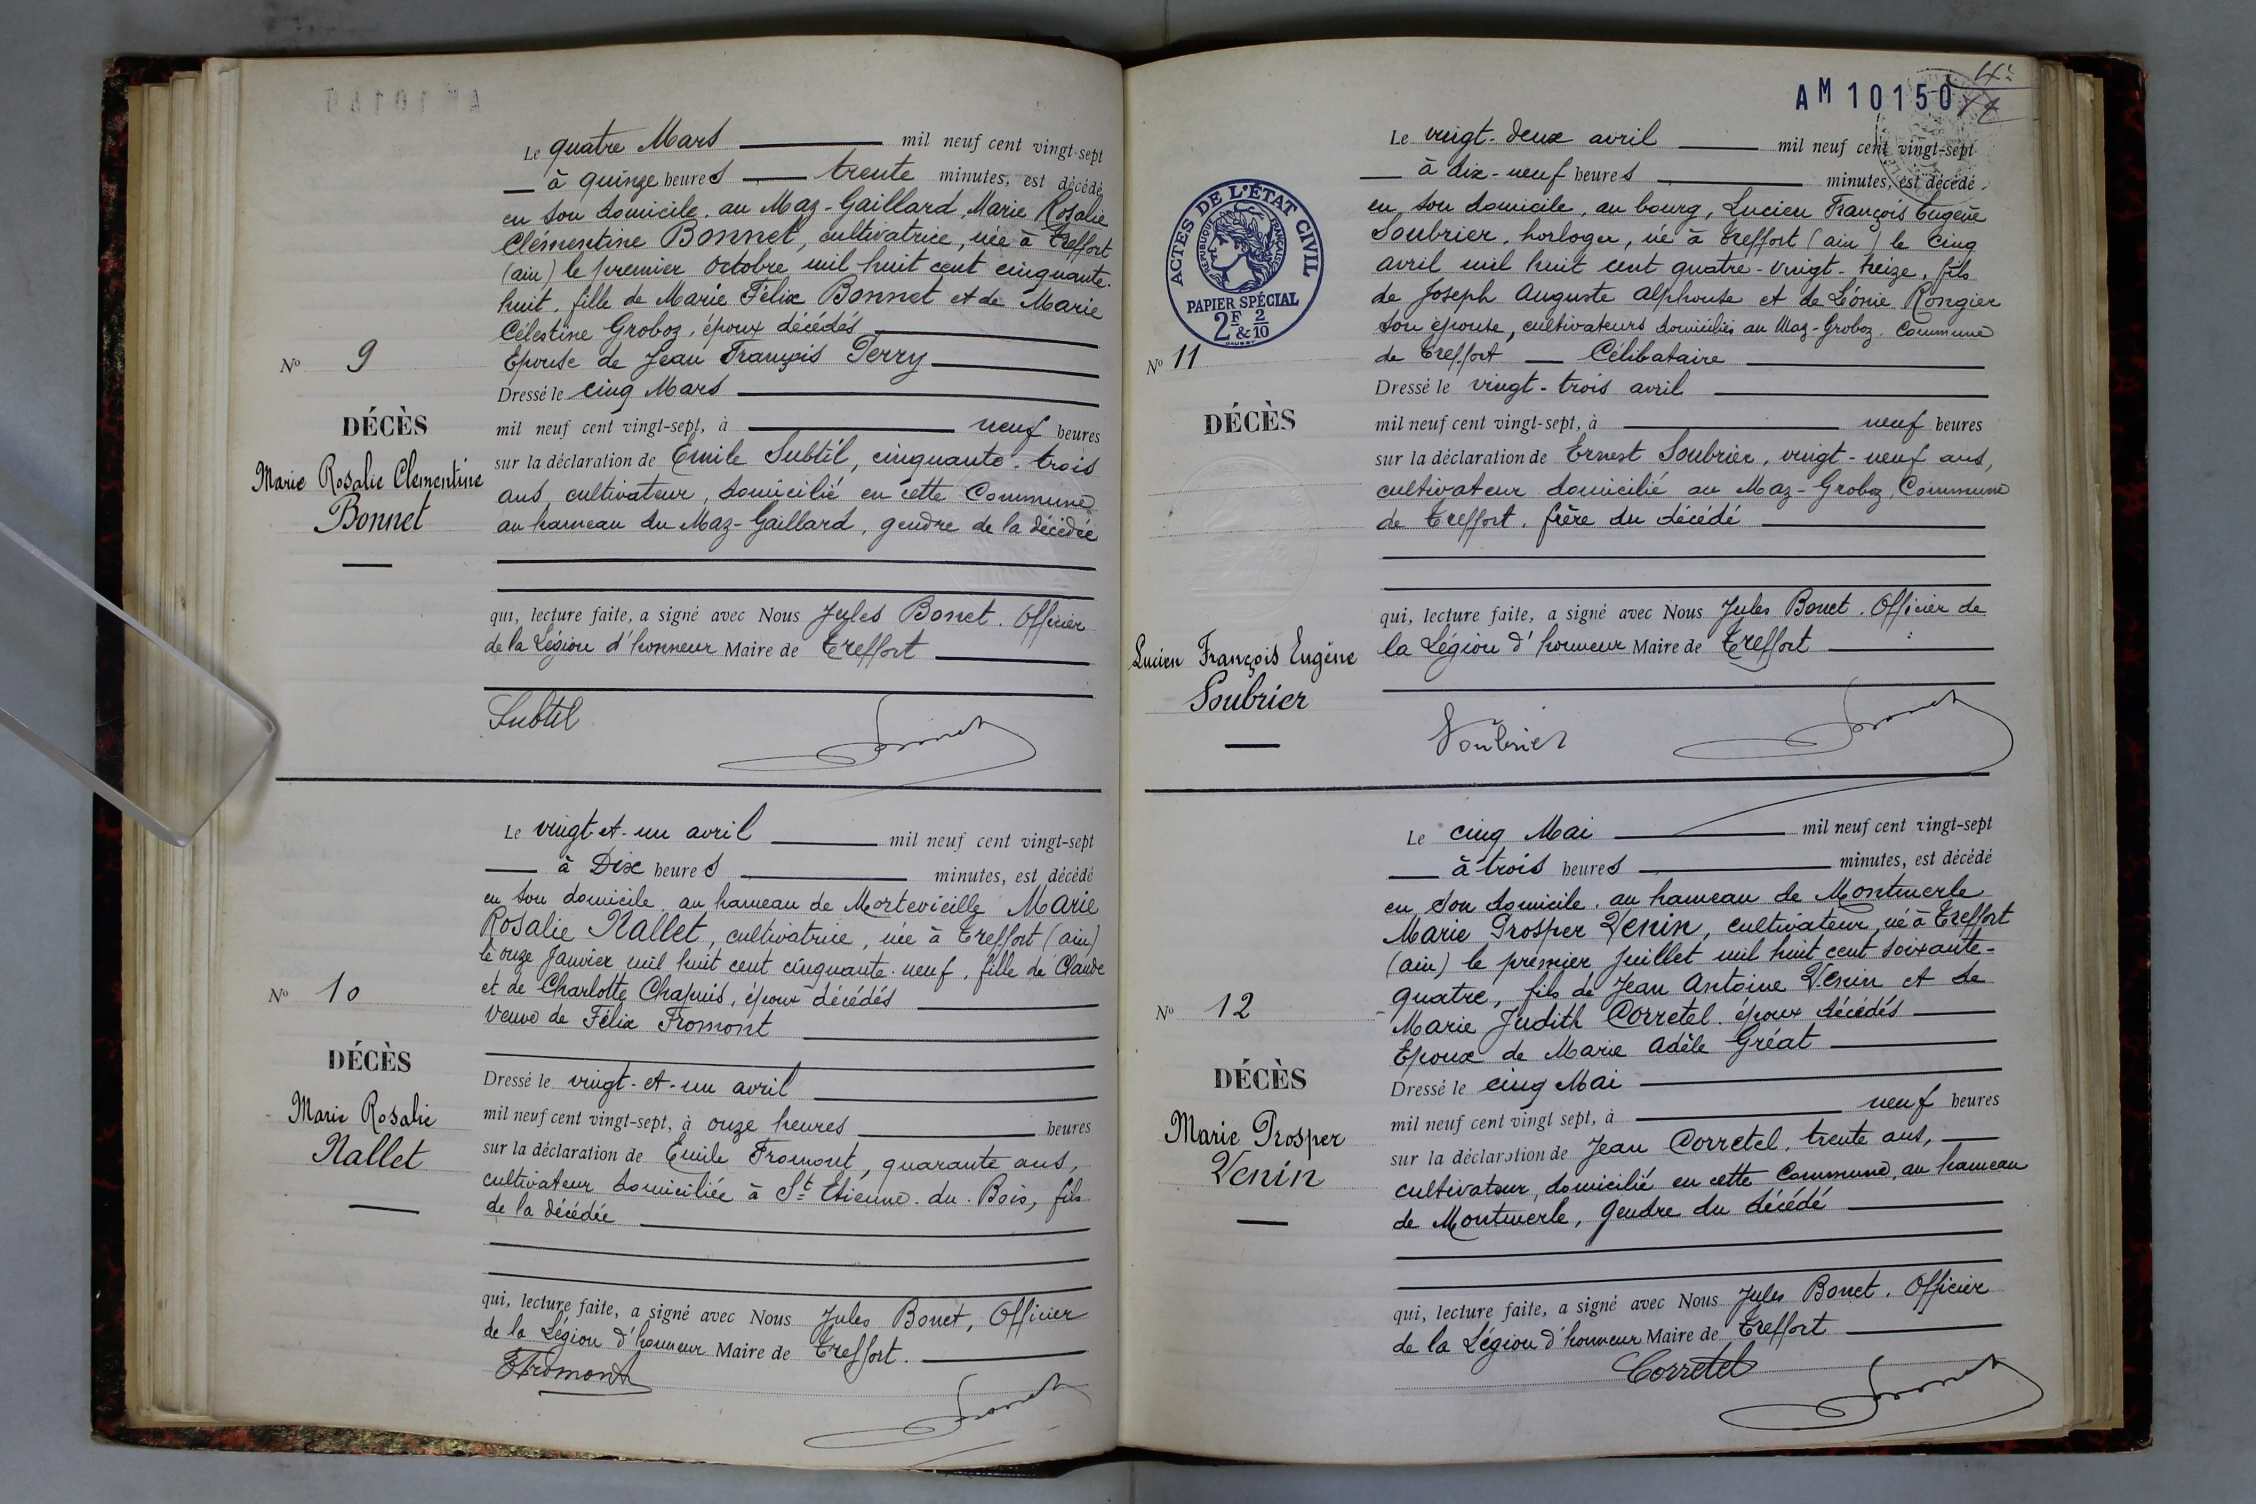 Le quatre Mars mil neuf cent vingt-sept
à quinze heures trente minutes, est décédé
en son domicile, au Maz-Gaillard, Marie Rosalie
Clémentine Bonnet, cultivatrice, née à Treffort
(ain) le premier Octobre mil huit cent cinquante-
huit, fille de Marie Félix Bonnet et de Marie
Célestine Groboz, époux décédés
Epouse de Jean François Perry
Nº 9
Dressé le cinq Mars
DÉCÈS
mil neuf cent vingt-sept, à neuf heures
Marie Rosalie Clementine
Bonnet
sur la déclaration de Emile Subtil, cinquante-trois
ans, cultivateur, domicilié en cette Commune
au hameau du Maz-Gaillard, gendre de la décédée
qui, lecture faite, a signé avec Nous Jules Bonet. Officier
de la Légion d'honneur Maire de Treffort
Subtil
Le vingt-et-un avril mil neuf cent vingt-sept
à Dix heures minutes, est décédé
en son domicile, au hameau de Mortevieille Marie
Rosalie Nallet, cultivatrice, née à Treffort (ain)
le onze Janvier mil huit cent cinquante-neuf, fille de Claude
et de Charlotte Chapuis, époux décédés
Veuve de Félix Fromont
Nº 10
DÉCÈS
Marie Rosalie
Nallet
Dressé le vingt-et-un avril
mil neuf cent vingt-sept, à onze heures heures
sur la déclaration de Emile Fromont, quarante ans,
cultivateur domiciliée à St Etienne-du-Bois, fils
de la décédée
qui, lecture faite, a signé avec Nous Jules Bonet, Officier
de la Légion d'honneur Maire de Treffort.
EFromont
AM 10150
Le vingt-deux avril mil neuf cent vingt-sept
à dix-neuf heures minutes, est décédé
en son domicile, au bourg, Lucien François Eugène
Soubrier, horloger, né à Treffort (ain) le cinq
avril mil huit cent quatre-vingt-treize, fils
de Joseph Auguste Alphonse et de Léonie Rongier
son épouse, cultivateurs domiciliés au Maz-Groboz, Commune
de Treffort Célibataire
ACTES DE L'ÉTAT CIVIL
RÉPUBLIQUE FRANÇAISE
PAPIER SPÉCIAL
2F & 2/10
Nº 11
DÉCÈS
Lucien François Eugène
Soubrier
Dressé le vingt-trois avril
mil neuf cent vingt-sept, à neuf heures
sur la déclaration de Ernest Soubrier, vingt-neuf ans,
cultivateur domicilié au Maz-Groboz, Commune
de Treffort, frère du décédé
qui, lecture faite, a signé avec Nous Jules Bonet. Officier de
la Légion d'honneur Maire de Treffort
Soubrier
Le cinq Mai mil neuf cent vingt-sept
à trois heures minutes, est décédé
en son domicile, au hameau de Montmerle
Marie Prosper Venin, cultivateur, né à Treffort
(ain) le premier Juillet mil huit cent soixante-
quatre, fils de Jean Antoine Venin et de
Marie Judith Corretel, époux décédés
Epoux de Marie Adèle Gréat
Nº 12
DÉCÈS
Marie Prosper
Venin
Dressé le cinq Mai
mil neuf cent vingt sept, à neuf heures
sur la déclaration de Jean Corretel, trente ans,
cultivateur, domicilié en cette Commune, au hameau
de Montmerle, Gendre du décédé
qui, lecture faite, a signé avec Nous Jules Bonet. Officier
de la Légion d'honneur Maire de Treffort
Corretel